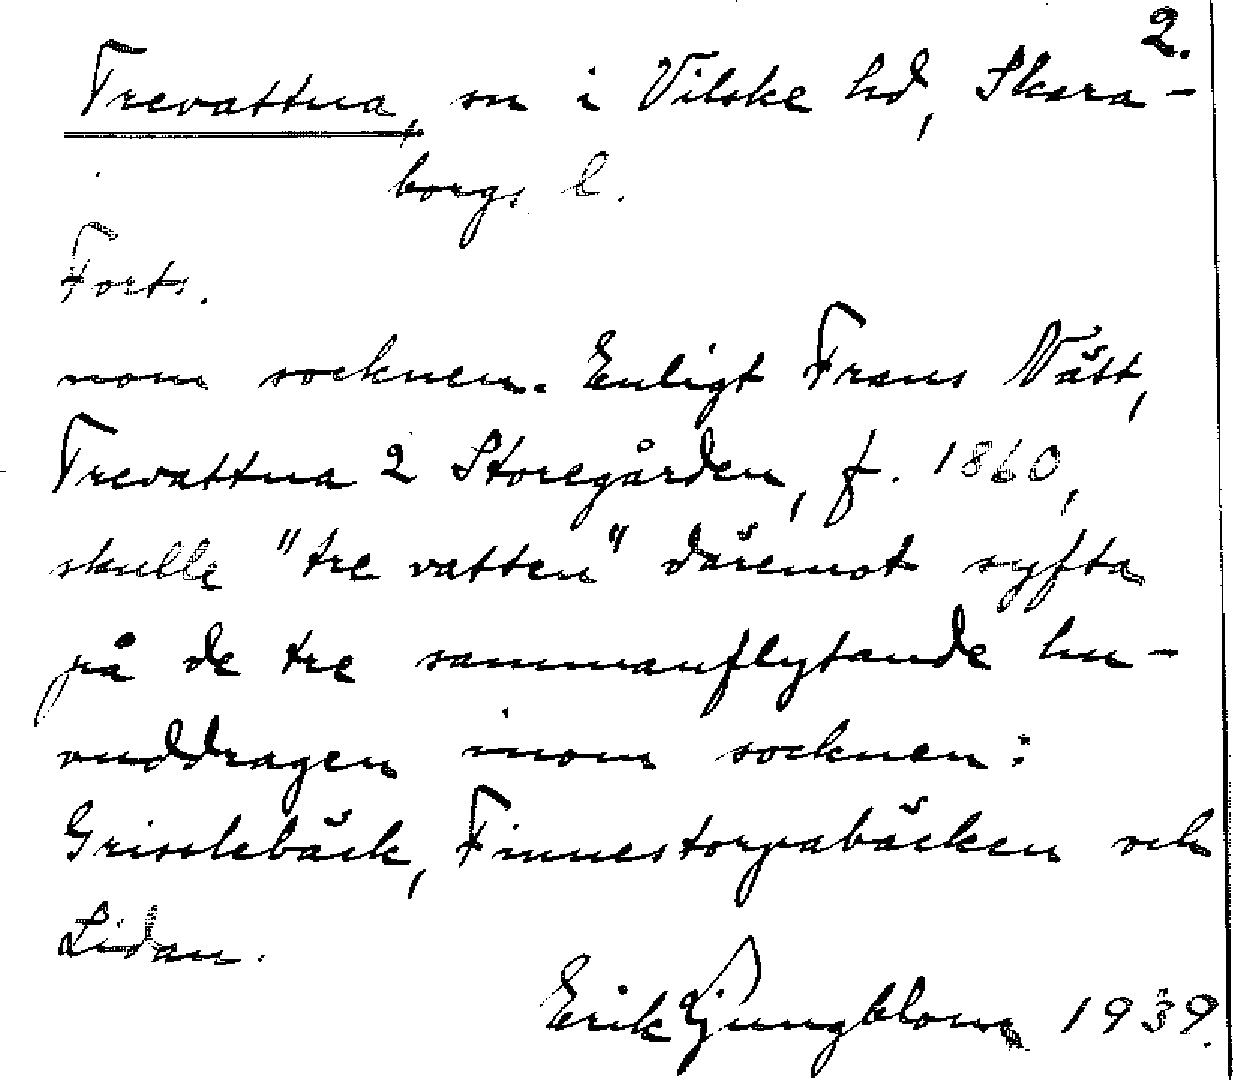 2.
Trevattna, sn i Vilske hd, Skara-
borgs l.
Forts.
nom socknen. Enligt Frans Vätt,
Trevattna 2 Storegården, f. 1860,
skulle "tre vatten" däremot syfta
på de tre sammanflytande hu-
vuddragen inom socknen:
Grisslebäck, Finnestorpabäcken och
Lidan.
Erik Ljungblom 1939.